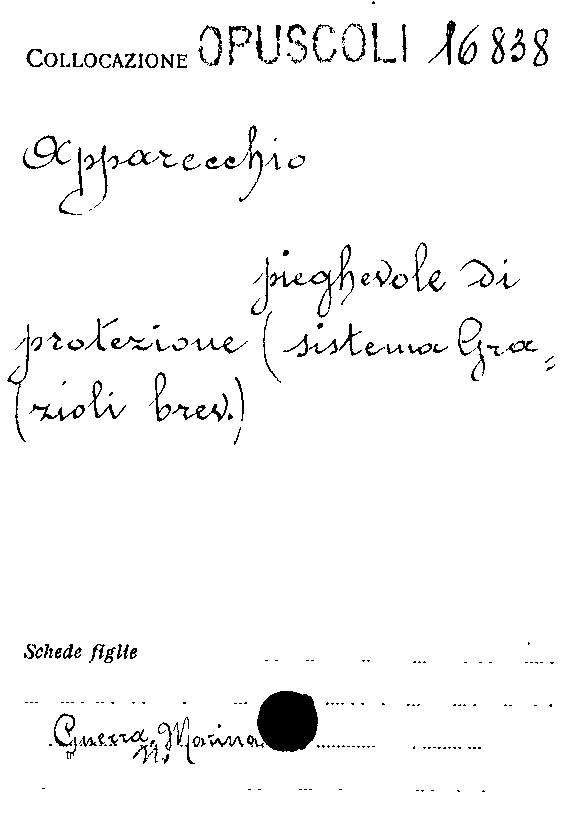 COLLOCAZIONE OPUSCOLI 16838
Apparecchio
pieghevole di
protezione (sistema Gra=
(zioli brev.)
Schede figlie
Guerra, Marina